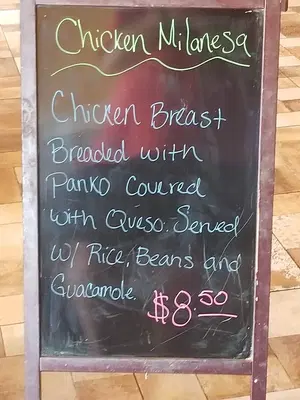 Chicken Milanesa
Chicken Breast
Breaded with
Panko Covered
with Queso. Served
w/ Rice, Beans and
Guacamole.
$8.50